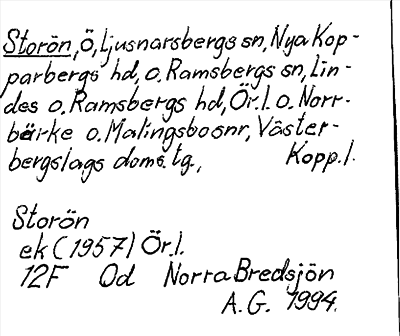 Storön, ö, Ljusnarsbergs sn, Nya Kop-
parbergs hd, o. Ramsbergs sn, Lin-
des o. Ramsbergs hd, Ör.l. o. Norr-
bärke o. Malingsbo snr, Väster-
bergslags doms. tg., Kopp.l.
Storön
ek (1957) Ör.l.
12F Od Norra Bredsjön
A.G. 1994.